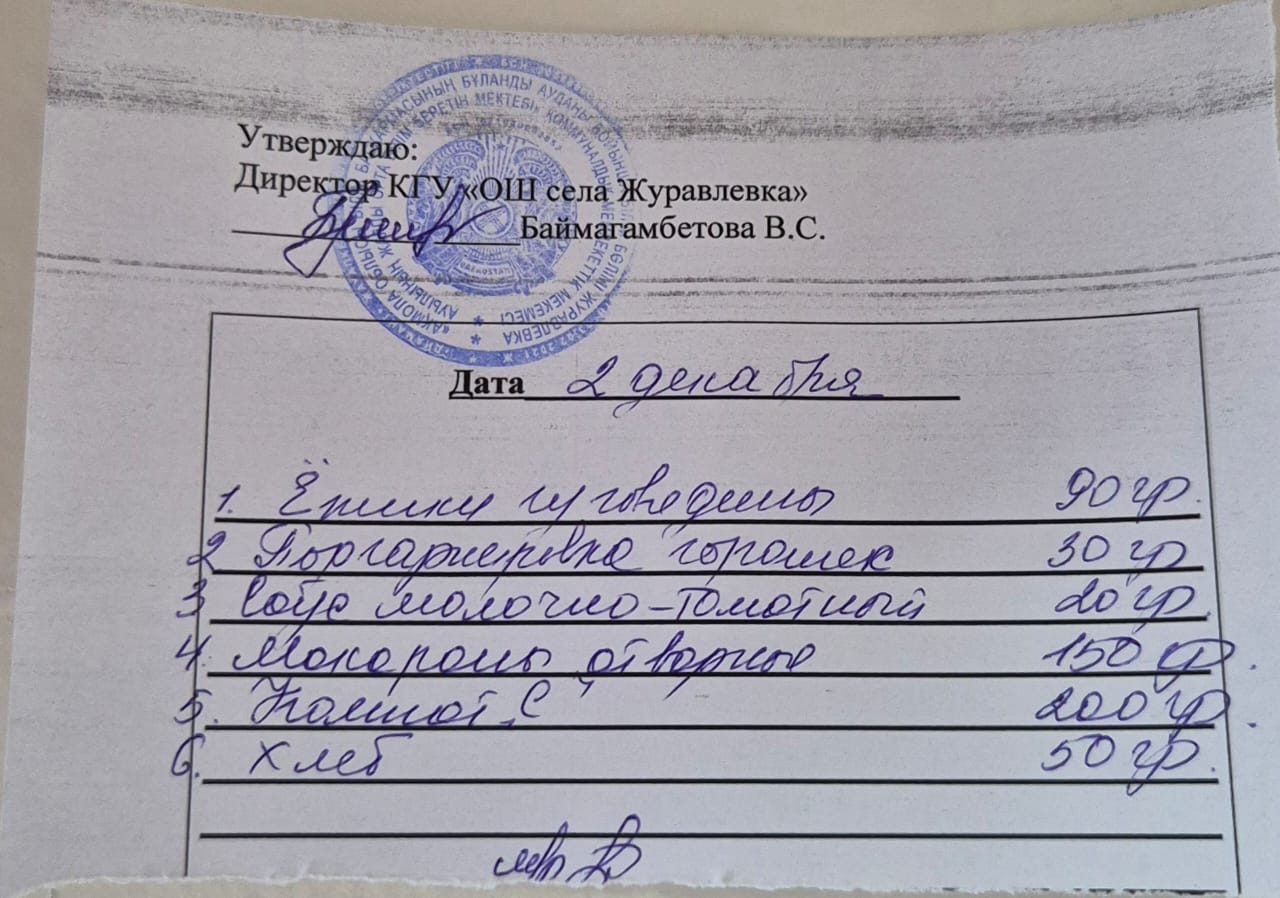 Утверждаю:
Директор КГУ «ОШ села Журавлевка»
Баймагамбетова В.С.
Дата 2 декабря
1. Ёжики из говядины 90 гр.
2 Подгарнировка горошек 30 гр
3 Соус молочно-томатный 20 гр.
4. Макароны отварные 150 гр.
5. Компот "С" 200 гр.
6. Хлеб 50 гр.